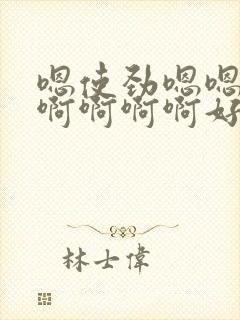 嗯使劲嗯嗯
啊啊啊啊好
林士偉